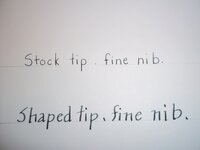 Stock tip. fine nib.
Shaped tip. fine nib.